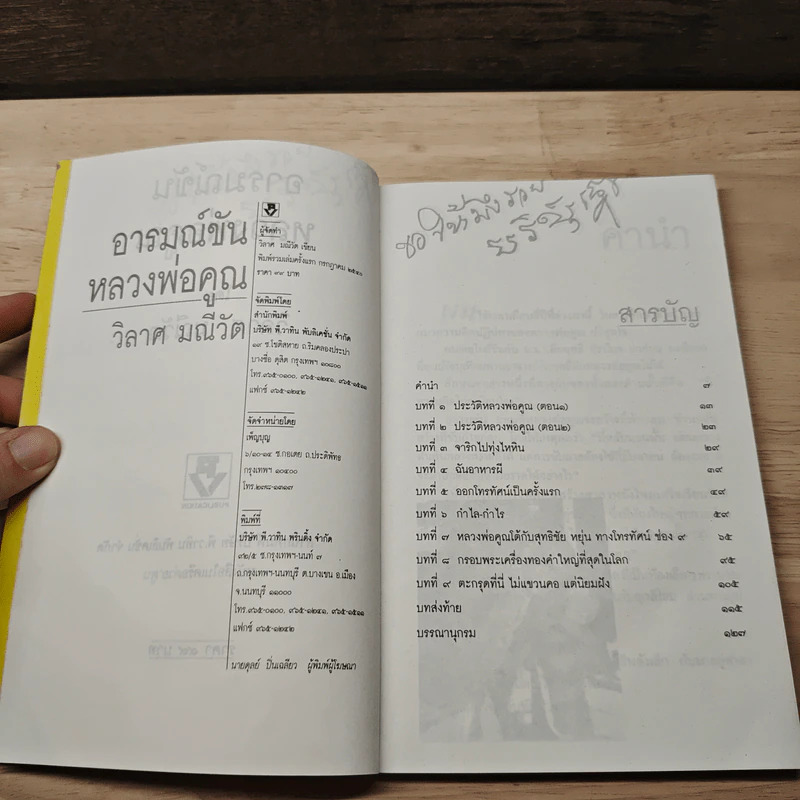 อารมณ์ขัน
หลวงพ่อคูณ
วิลาศ มณีวัต
ผู้จัดทำ
วิลาศ มณีวัต เขียน
พิมพ์รวมเล่มครั้งแรก กรกฎาคม ๒๕๓๖
ราคา ๗๙ บาท
จัดพิมพ์โดย
สำนักพิมพ์
บริษัท พี.วาทิน พับลิเคชั่น จำกัด
๑๙ ซ.โชติสหาย ถ.ริมคลองประปา
บางซื่อ ดุสิต กรุงเทพฯ ๑๐๘๐๐
โทร.๙๖๕-๐๑๐๐, ๙๖๕-๑๒๔๑, ๙๖๕-๑๕๑๑
แฟกซ์ ๙๖๕-๑๒๔๒
จัดจำหน่ายโดย
เพ็ญบุญ
๖/๑๐-๑๔ ซ.กอเตย ถ.ประดิพัทธ
กรุงเทพฯ ๑๐๔๐๐
โทร.๒๗๘-๑๓๑๗
พิมพ์ที่
บริษัท พี.วาทิน พรินติ้ง จำกัด
๙๒/๕ ซ.กรุงเทพฯ-นนท์ ๗
ถ.กรุงเทพฯ-นนทบุรี ต.บางเขน อ.เมือง
จ.นนทบุรี ๑๑๐๐๐
โทร.๙๖๕-๐๑๐๐, ๙๖๕-๑๒๔๑, ๙๖๕-๑๕๑๑
แฟกซ์ ๙๖๕-๑๒๔๒
นายดุลย์ ปิ่นเฉลียว ผู้พิมพ์ผู้โฆษณา
สารบัญ
คำนำ ๗
บทที่ ๑ ประวัติหลวงพ่อคูณ (ตอน๑) ๑๓
บทที่ ๒ ประวัติหลวงพ่อคูณ (ตอน๒) ๒๓
บทที่ ๓ จาริกไปทุ่งไหหิน ๒๙
บทที่ ๔ ฉันอาหารผี ๓๙
บทที่ ๕ ออกโทรทัศน์เป็นครั้งแรก ๔๙
บทที่ ๖ กำไล-กำไร ๕๙
บทที่ ๗ หลวงพ่อคูณโต้กับสุทธิชัย หยุ่น ทางโทรทัศน์ ช่อง ๙ ๖๕
บทที่ ๘ กรอบพระเครื่องทองคำใหญ่ที่สุดในโลก ๙๕
บทที่ ๙ ตะกรุดที่นี่ ไม่แขวนคอ แต่นิยมฝัง ๑๐๕
บทส่งท้าย ๑๑๕
บรรณานุกรม ๑๒๗